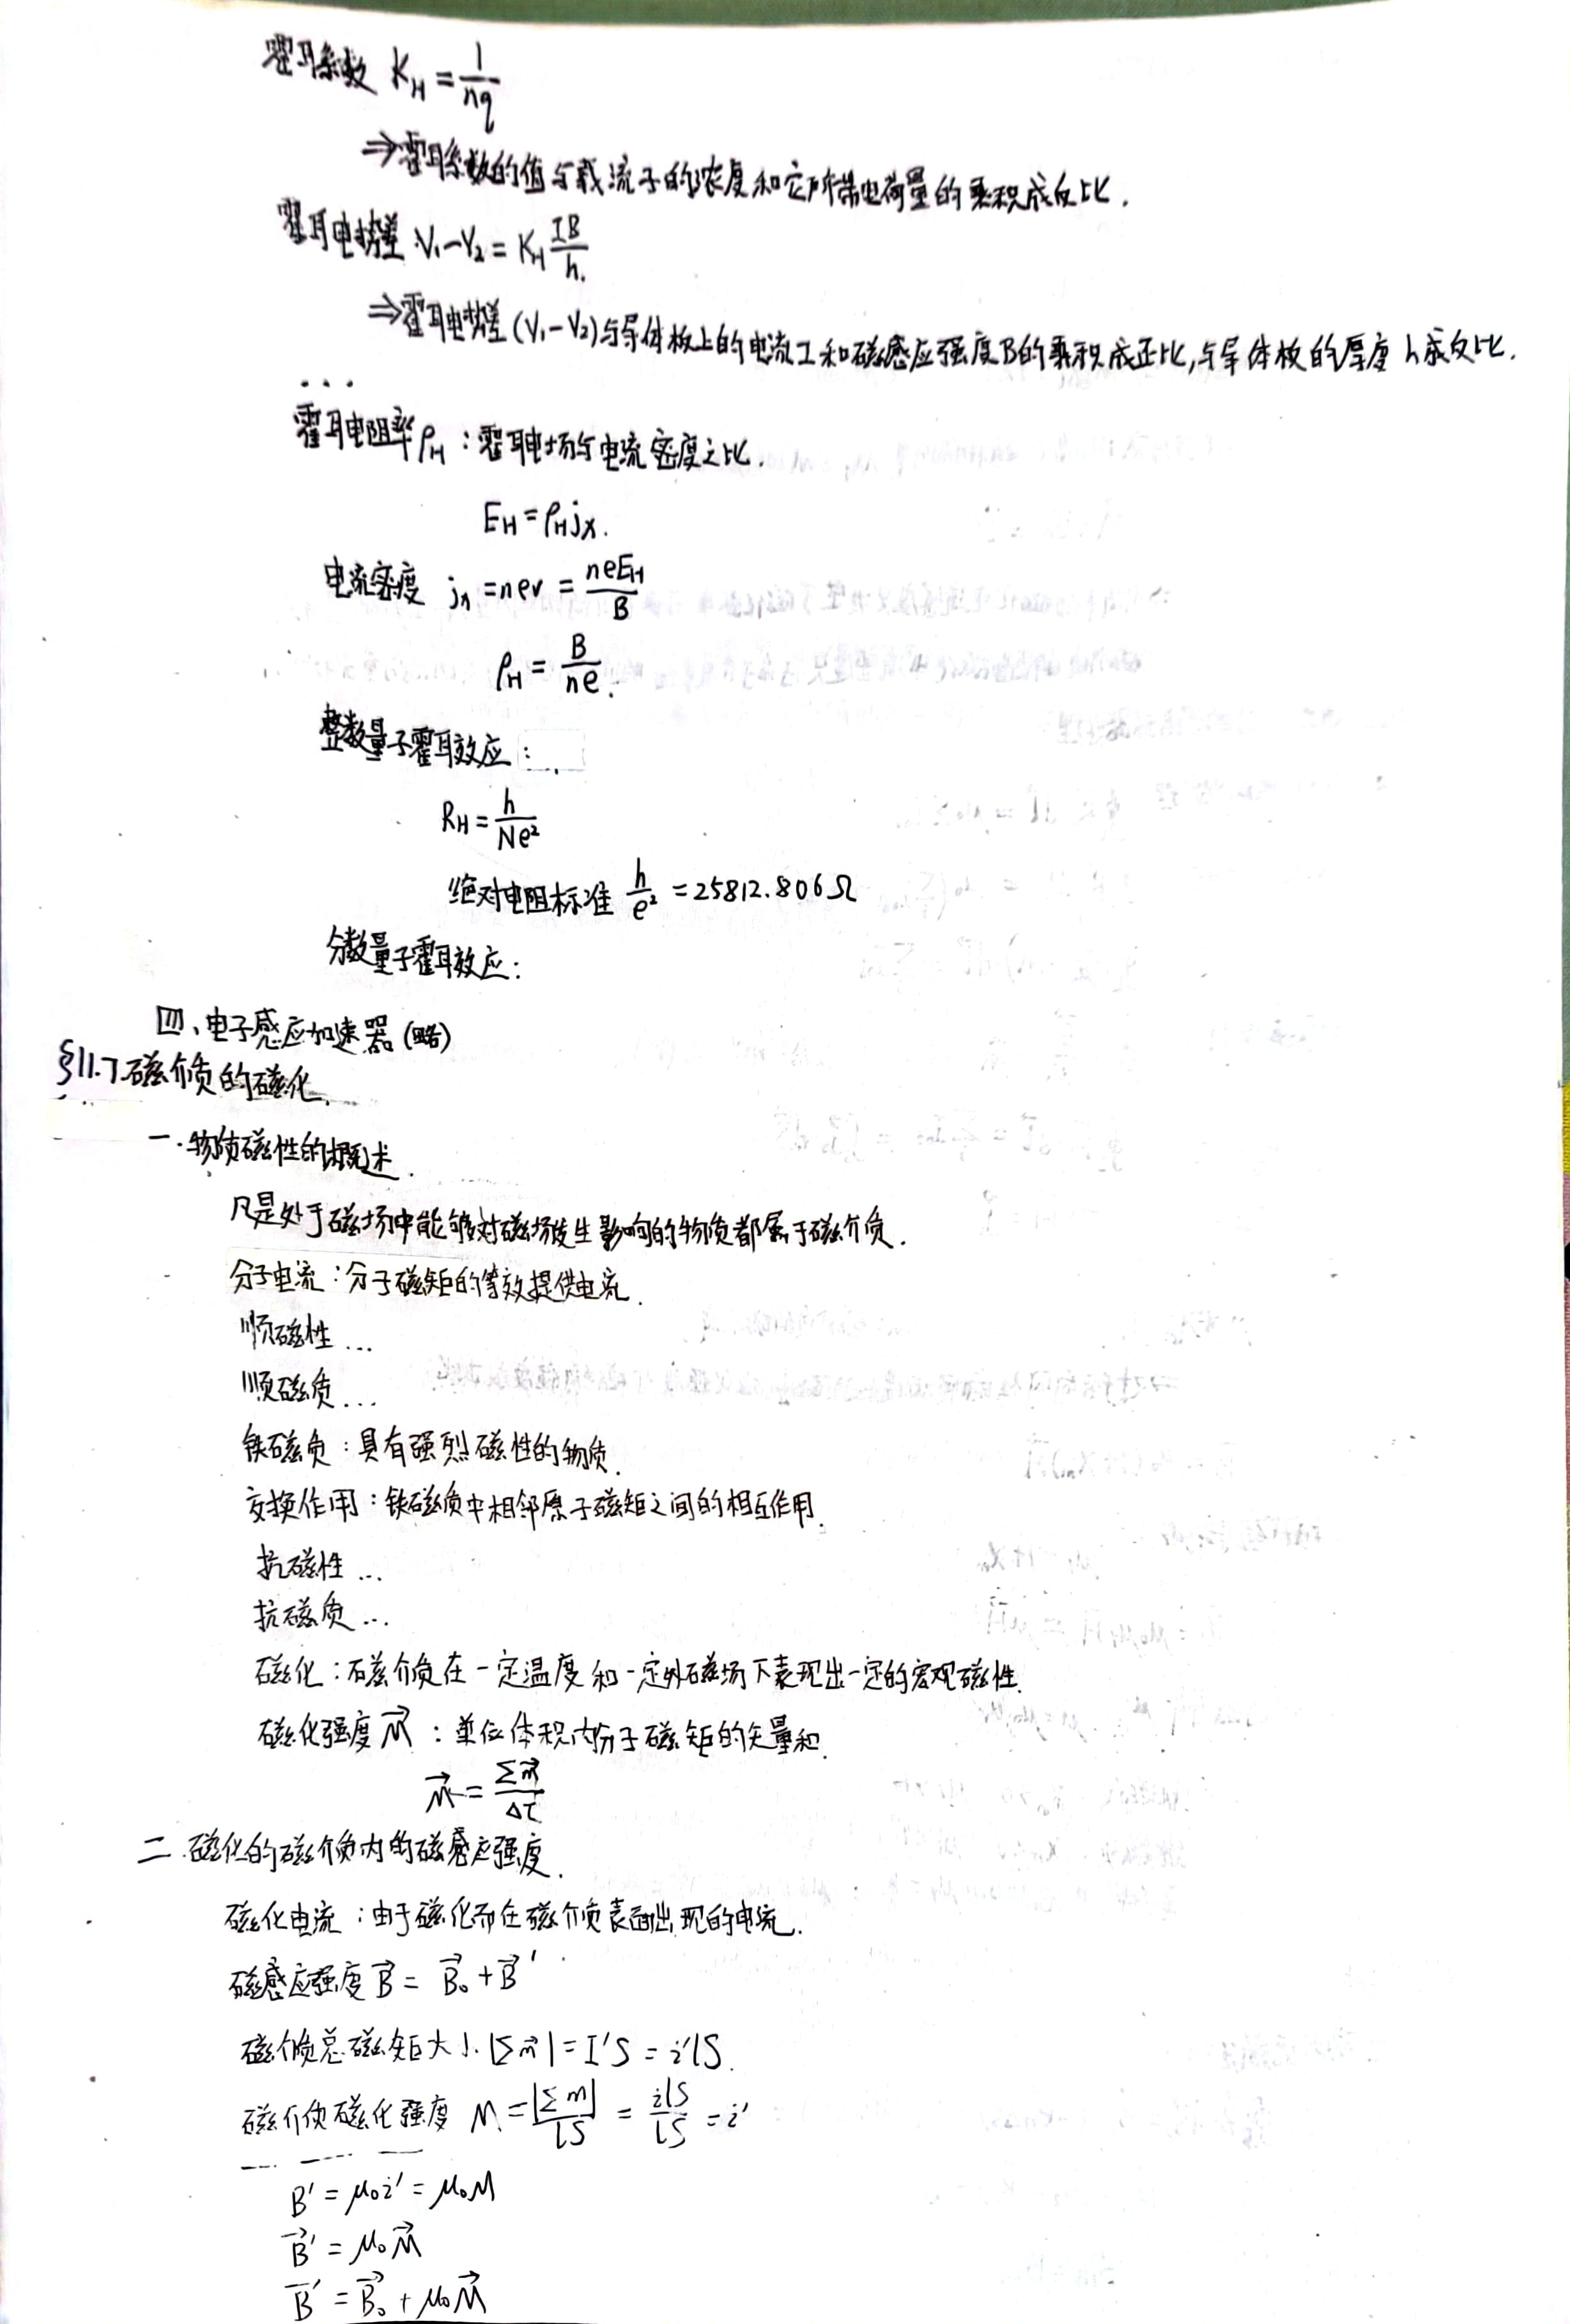 霍耳系数 K_H = 1/nq
⇒霍耳系数的值与载流子的浓度和它所带电荷量的乘积成反比.
霍耳电势差:V₁-V₂ = K_H IB/h.
⇒霍耳电势差(V₁-V₂)与导体板上的电流I和磁感应强度B的乘积成正比,与导体板的厚度h成反比.
...
霍耳电阻率ρ_H:霍耳电场与电流密度之比.
E_H = ρ_H j_x.
电流密度 j_x = nev = neE_H/B
ρ_H = B/ne.
整数量子霍耳效应:
R_H = h/Ne²
绝对电阻标准 h/e² = 25812.806Ω
分数量子霍耳效应:
四、电子感应加速器(略)
§11.7.磁介质的磁化.
一.物质磁性的概述.
凡是处于磁场中能够对磁场发生影响的物质都属于磁介质.
分子电流:分子磁矩的等效提供电流.
顺磁性...
顺磁质...
铁磁质:具有强烈磁性的物质.
交换作用:铁磁质中相邻原子磁矩之间的相互作用.
抗磁性...
抗磁质...
磁化:磁介质在一定温度和一定外磁场下表现出一定的宏观磁性.
磁化强度M⃗:单位体积内分子磁矩的矢量和.
M⃗ = Σm⃗/Δτ
二.磁化的磁介质内的磁感应强度.
磁化电流:由于磁化而在磁介质表面出现的电流.
磁感应强度B⃗ = B⃗₀ + B⃗'
磁介质总磁矩大小.|Σm⃗| = I'S = i'lS.
磁介质磁化强度 M = |Σm|/lS = ilS/lS = i'
B' = μ₀i' = μ₀M
B⃗' = μ₀M⃗
B⃗' = B⃗₀ + μ₀M⃗